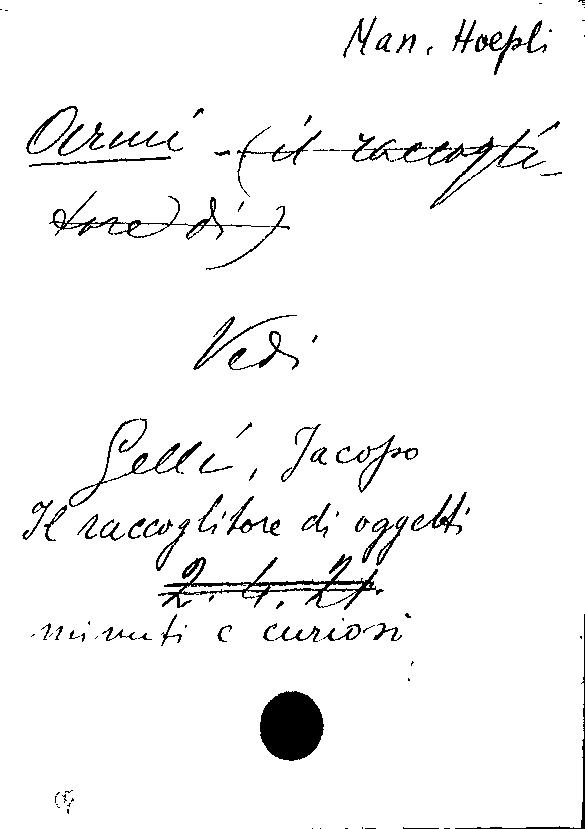 Man. Hoepli
Armi - (il raccogli-
tore di)
Vedi
Gelli, Jacopo
Il raccoglitore di oggetti
2. 4. 21.
minuti e curiosi